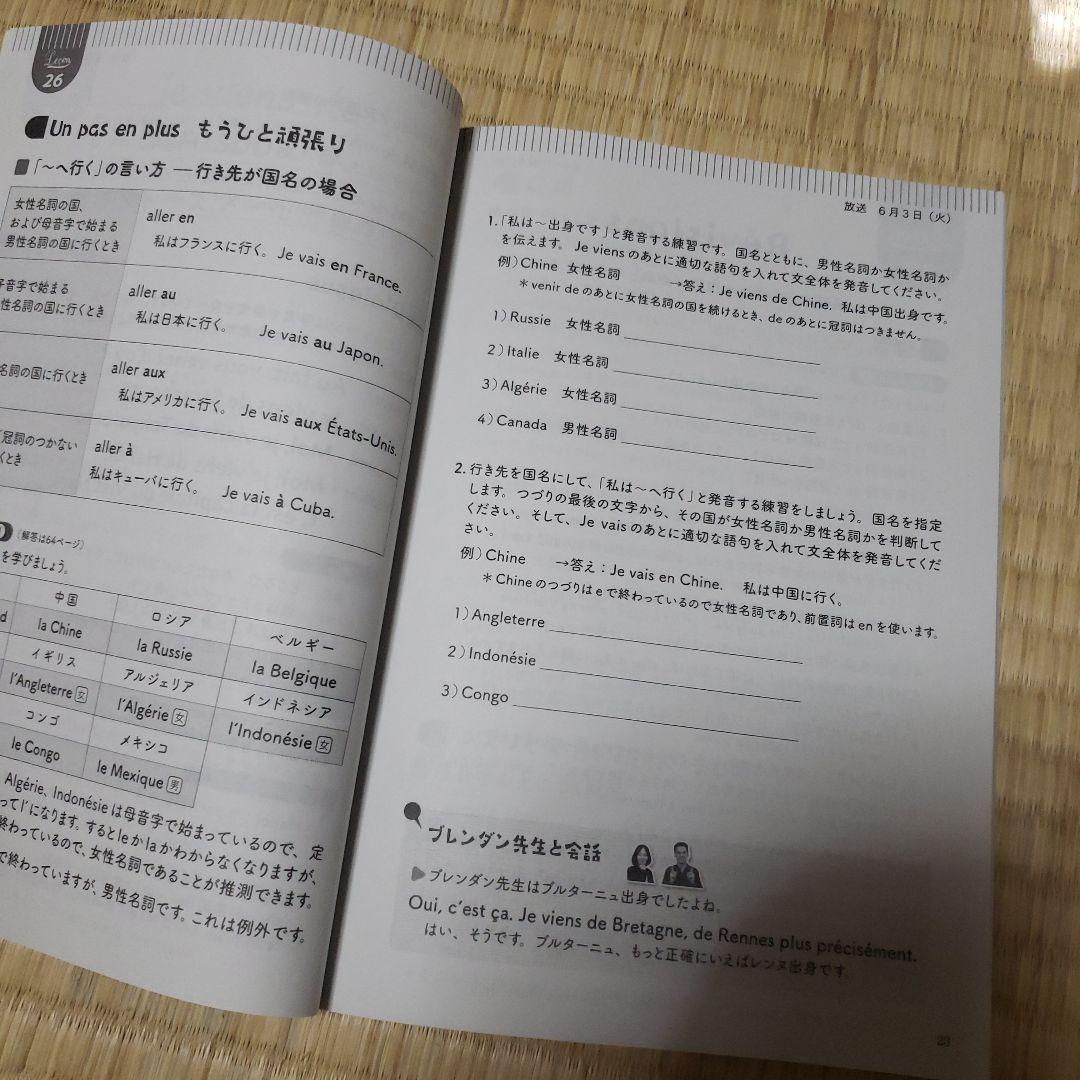 Leçon
26
Un pas en plus もうひと頑張り
「〜へ行く」の言い方 ―行き先が国名の場合
女性名詞の国、
および母音字で始まる
男性名詞の国に行くとき
aller en
私はフランスに行く。 Je vais en France.
子音字で始まる
性名詞の国に行くとき
aller au
私は日本に行く。 Je vais au Japon.
名詞の国に行くとき
aller aux
私はアメリカに行く。 Je vais aux États-Unis.
冠詞のつかない
くとき
aller à
私はキューバに行く。 Je vais à Cuba.
(解答は64ページ)
を学びましょう。
中国 ロシア ベルギー
la Chine la Russie la Belgique
イギリス アルジェリア インドネシア
l'Angleterre 女 l'Algérie 女 l'Indonésie 女
コンゴ メキシコ
le Congo le Mexique 男
Algérie、Indonésieは母音字で始まっているので、定
ってl'になります。するとleかlaかわからなくなりますが、
終わっているので、女性名詞であることが推測できます。
で終わっていますが、男性名詞です。これは例外です。
放送 6月3日(火)
1.「私は〜出身です」と発音する練習です。国名とともに、男性名詞か女性名詞か
を伝えます。Je viensのあとに適切な語句を入れて文全体を発音してください。
例)Chine 女性名詞 →答え:Je viens de Chine. 私は中国出身です。
*venir deのあとに女性名詞の国を続けるとき、deのあとに冠詞はつきません。
1)Russie 女性名詞
2)Italie 女性名詞
3)Algérie 女性名詞
4)Canada 男性名詞
2.行き先を国名にして、「私は〜へ行く」と発音する練習をしましょう。国名を指定
します。つづりの最後の文字から、その国が女性名詞か男性名詞かを判断して
ください。そして、Je vaisのあとに適切な語句を入れて文全体を発音してくだ
さい。
例)Chine →答え:Je vais en Chine. 私は中国に行く。
*Chineのつづりはeで終わっているので女性名詞であり、前置詞はenを使います。
1)Angleterre
2)Indonésie
3)Congo
ブレンダン先生と会話
ブレンダン先生はブルターニュ出身でしたよね。
Oui, c'est ça. Je viens de Bretagne, de Rennes plus précisément.
はい、そうです。ブルターニュ、もっと正確にいえばレンヌ出身です。
23